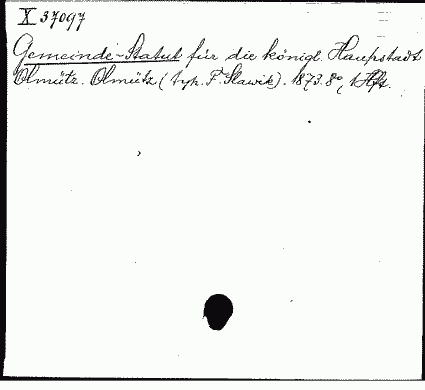 X 37097
Gemeinde-Statut für die königl. Haupstadt
Olmütz. Olmütz (typ. F. Slawik). 1873. 8°, 1 Hft.